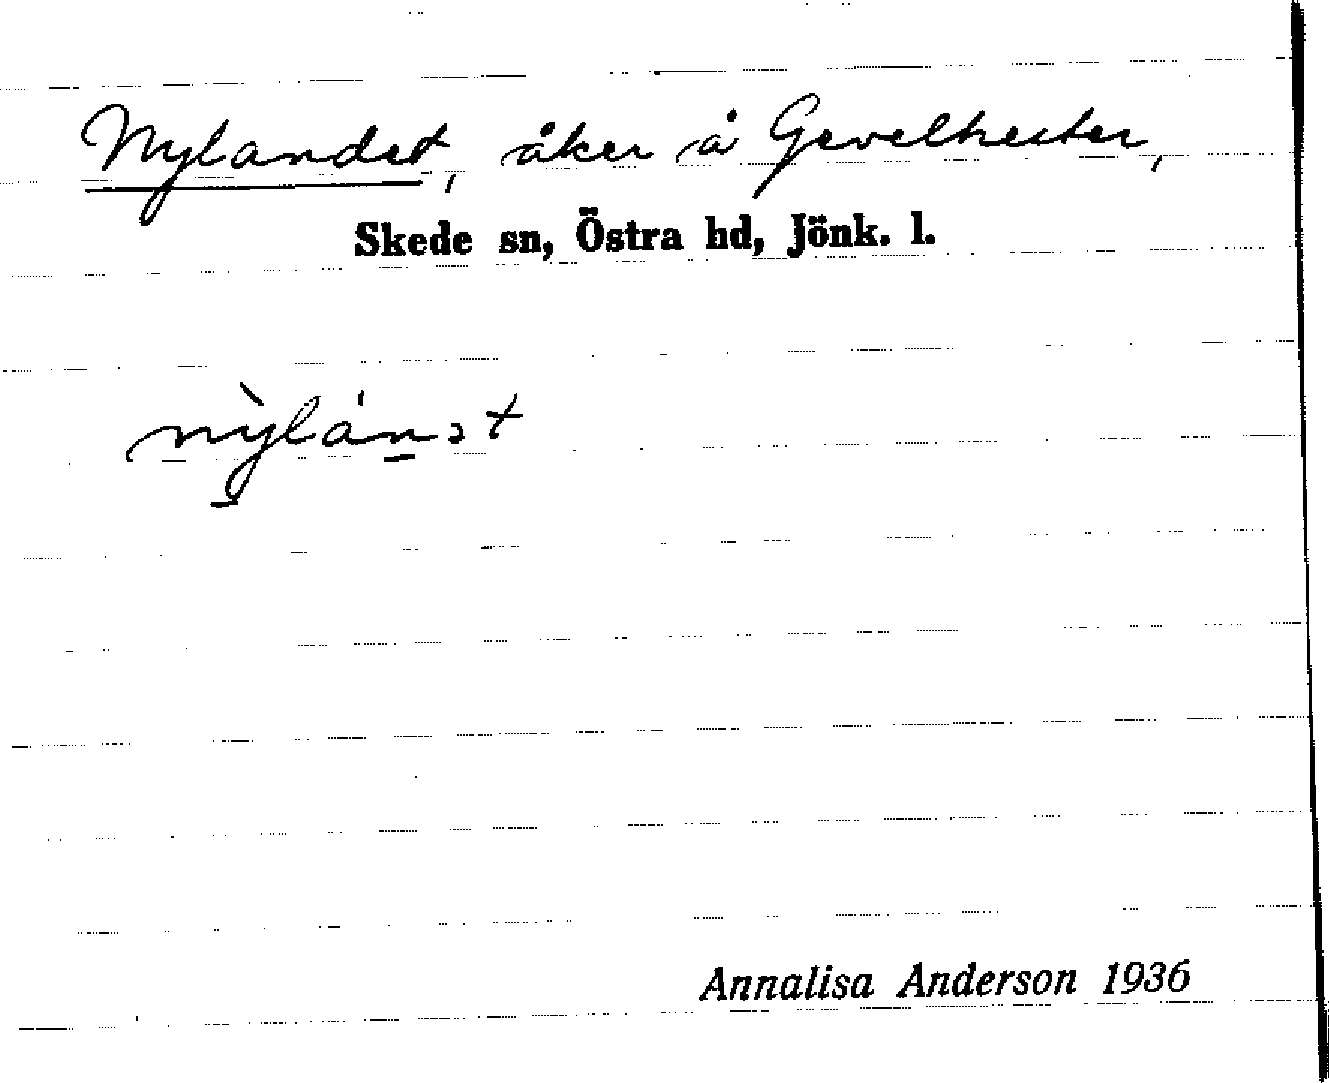 Nylandet, åker å Gevelhester,
Skede sn, Östra hd, Jönk. l.
nỳlánət
Annalisa Anderson 1936